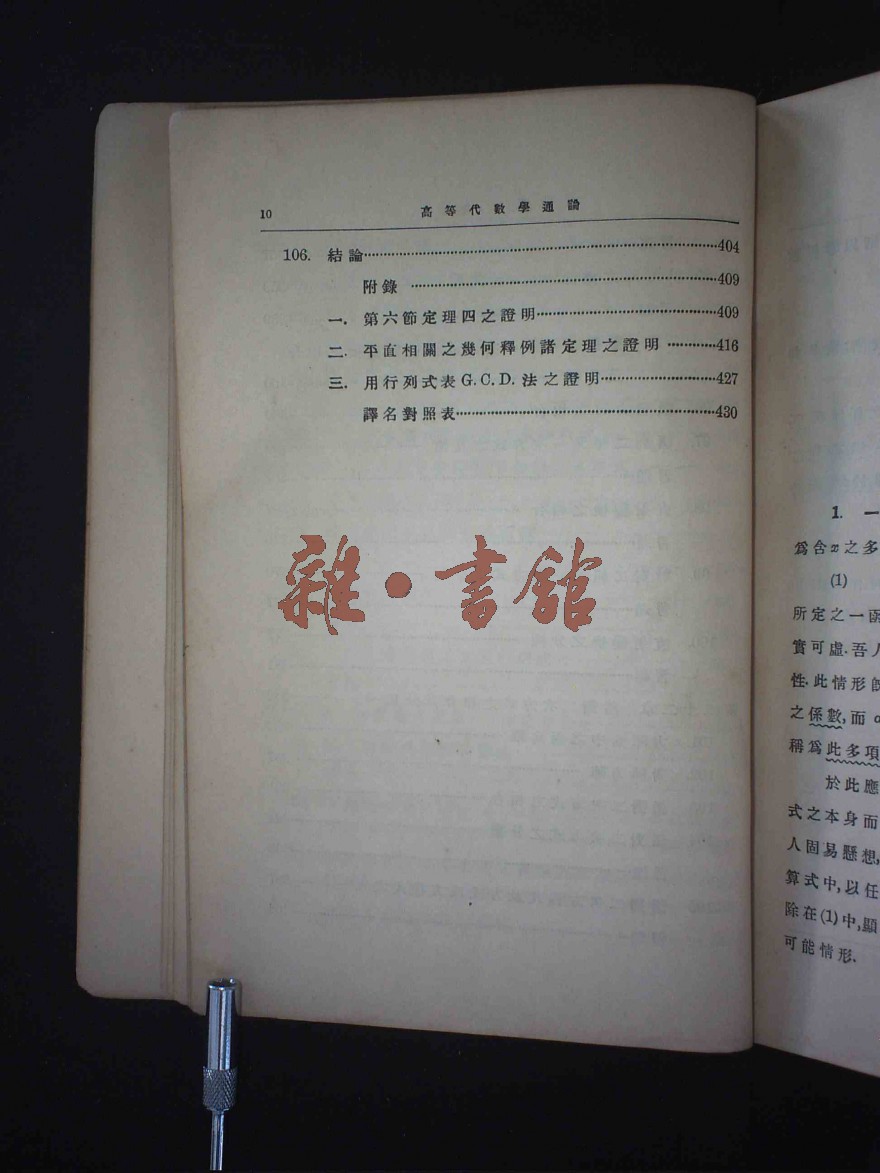 10 高等代數學通論
106. 結論……404
附錄……409
一. 第六節定理四之證明……409
二. 平直相關之幾何釋例諸定理之證明……416
三. 用行列式表G.C.D.法之證明……427
譯名對照表……430
雜·書館
1. 一
爲含x之多
(1)
所定之一函
實可虛.吾人
性.此情形
之係數,而
稱爲此多項
於此應
式之本身而
人固易懸想,
算式中,以任
除在(1)中,顯
可能情形.